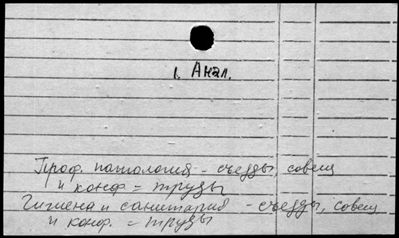 1. Анал.
Проф. патология - съезды, совещ
и конф. = труды
Гигиена и санитария - съезды, совещ
и конф. = труды